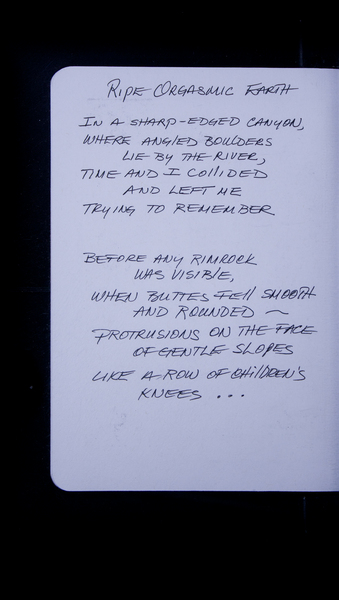 RIPE ORGASMIC EARTH
IN A SHARP-EDGED CANYON,
WHERE ANGLED BOULDERS
LIE BY THE RIVER,
TIME AND I COLLIDED
AND LEFT ME
TRYING TO REMEMBER
BEFORE ANY RIMROCK
WAS VISIBLE,
WHEN BUTTES FELL SMOOTH
AND ROUNDED ~
PROTRUSIONS ON THE FACE
OF GENTLE SLOPES
LIKE A ROW OF CHILDREN'S
KNEES ...